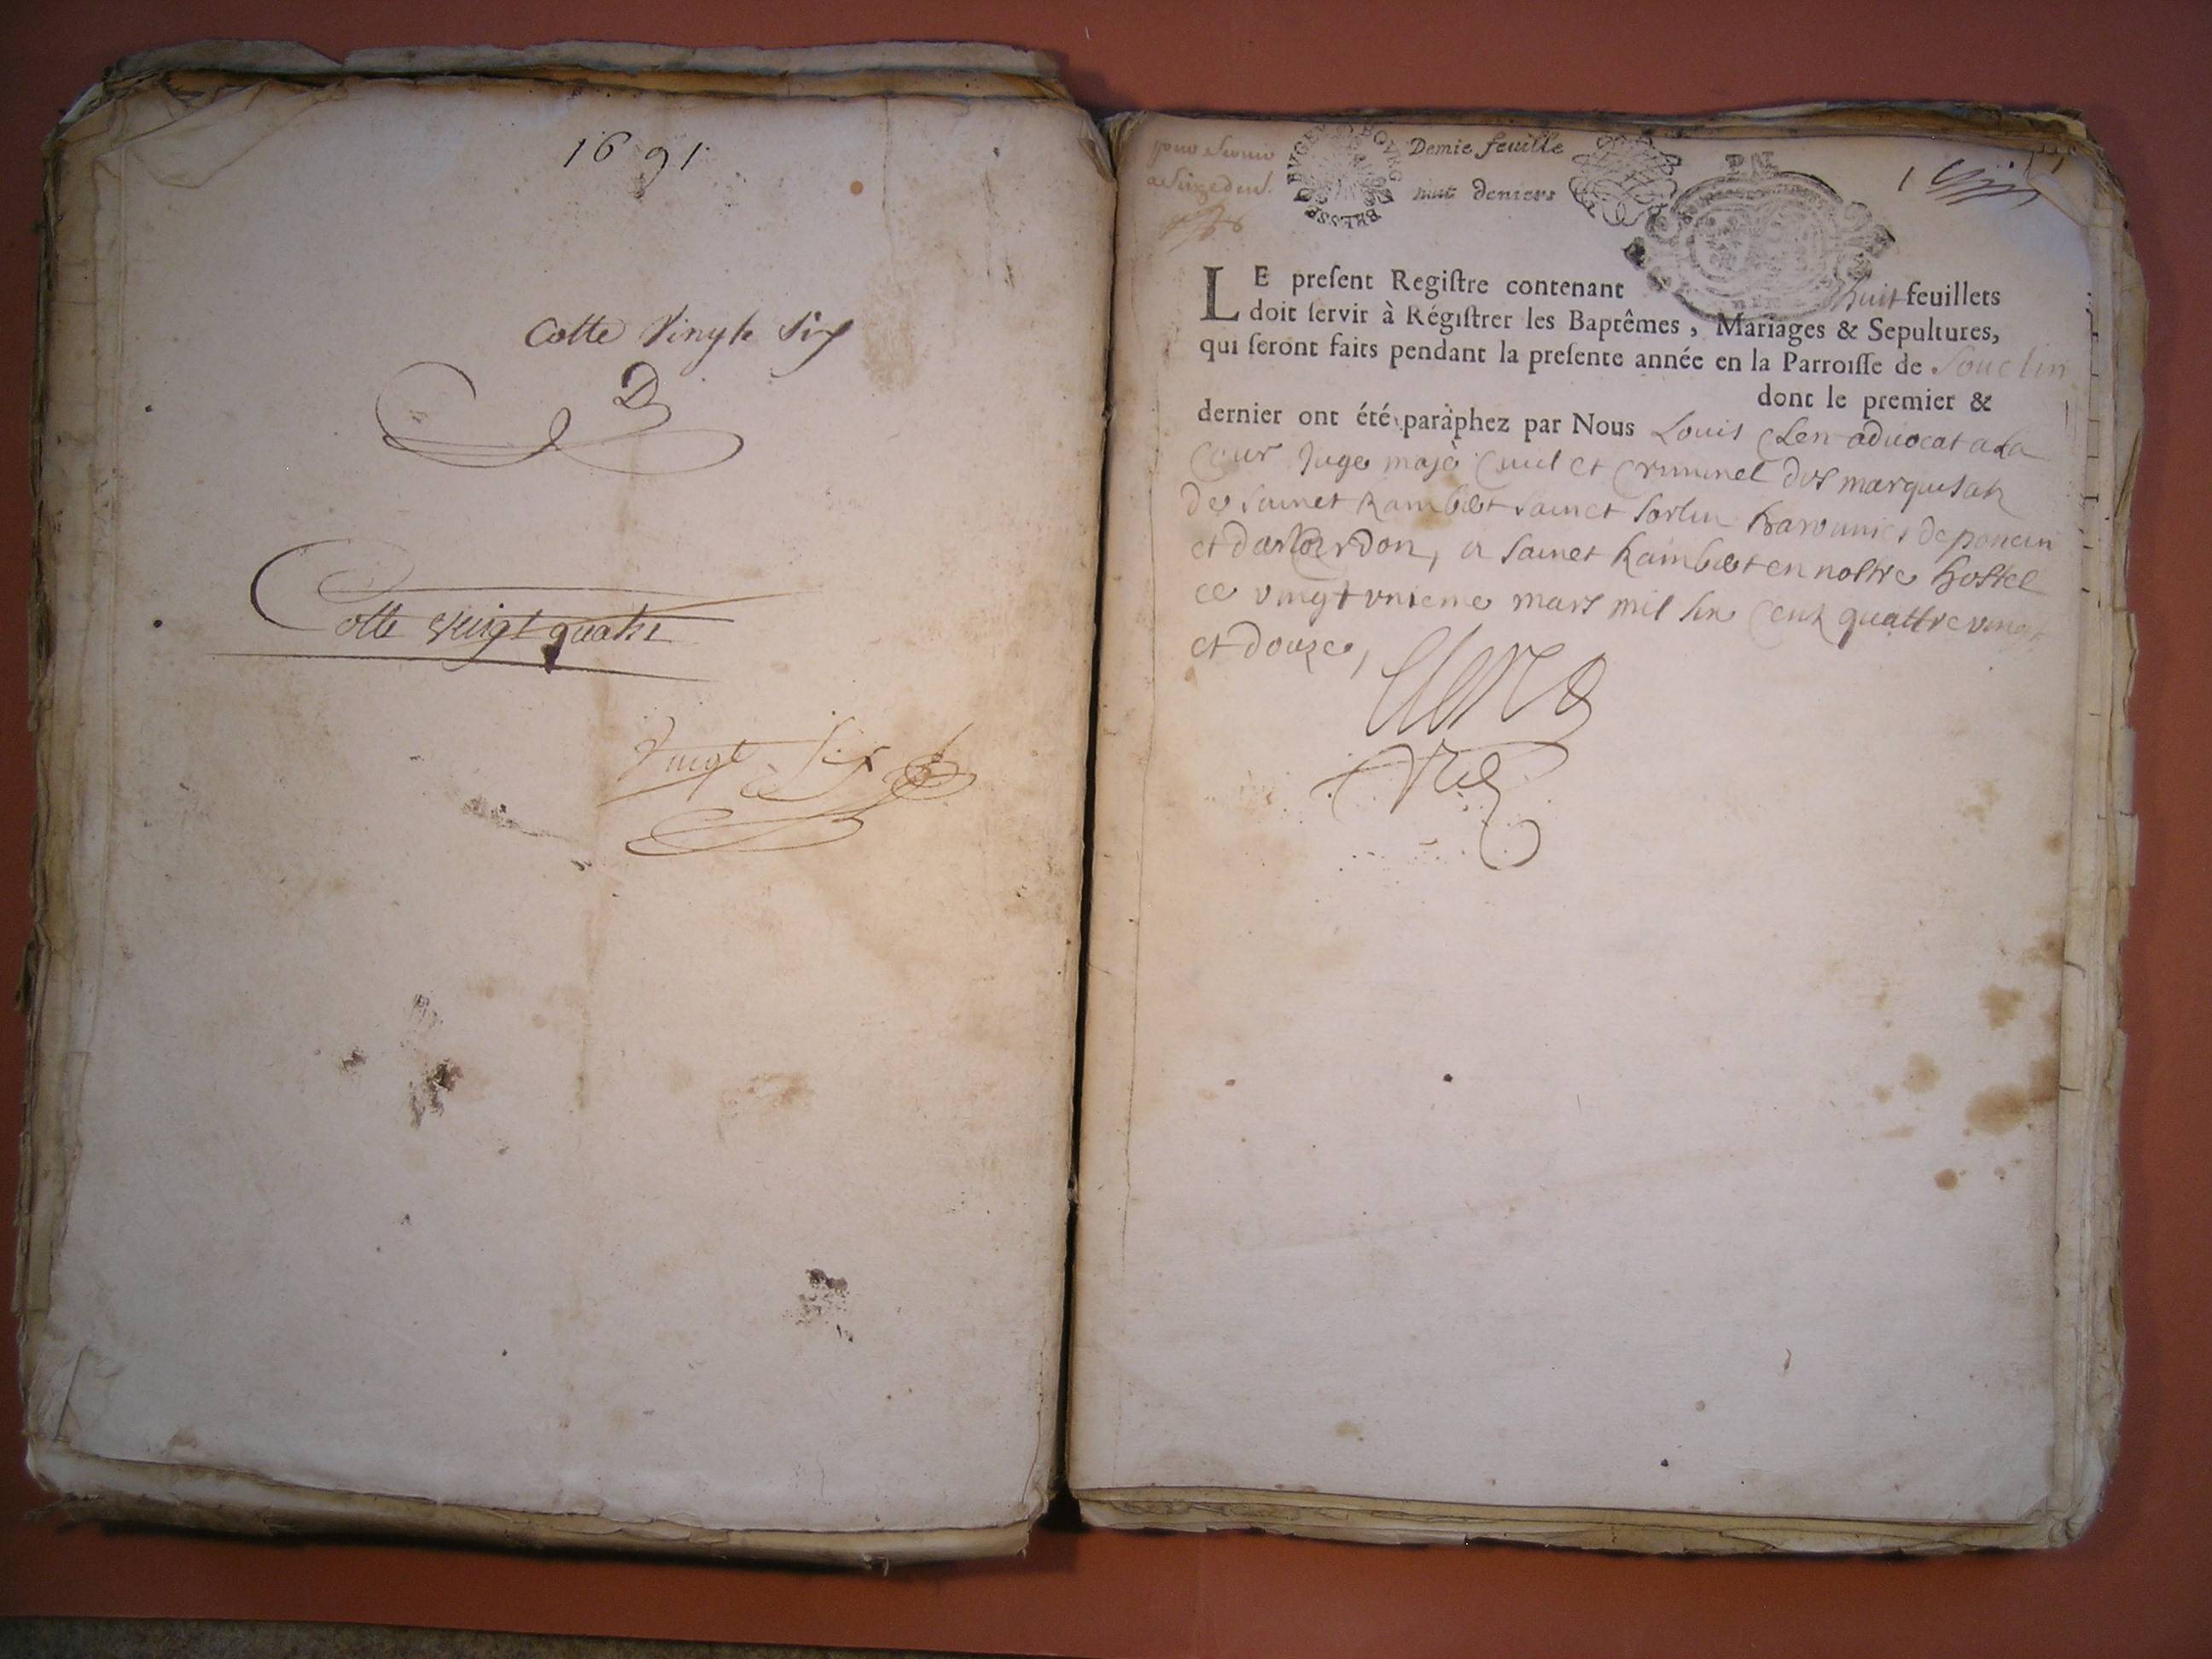 1691
Cotte Vingte Six
Cotte vingt quatre
Vingt Six
pour servir
BOURG BRESSE BUGEY
Demie feuille
huit deniers
1
LE preſent Regiſtre contenant huit feuillets
doit ſervir à Régiſtrer les Baptêmes, Mariages & Sepultures,
qui ſeront faits pendant la preſente année en la Parroiſſe de Souclin
dont le premier &
dernier ont été paraphez par Nous Louis Clerc advocat a la
Cour Juge maje Civil et Criminel des marquisatz
de Sainct Rambert Sainct Sorlin baronnies de poncin
et de Cerdon, a Sainct Rambert en nostre hostel
ce vingt unieme mars mil six centz quattre vingt
et douze,